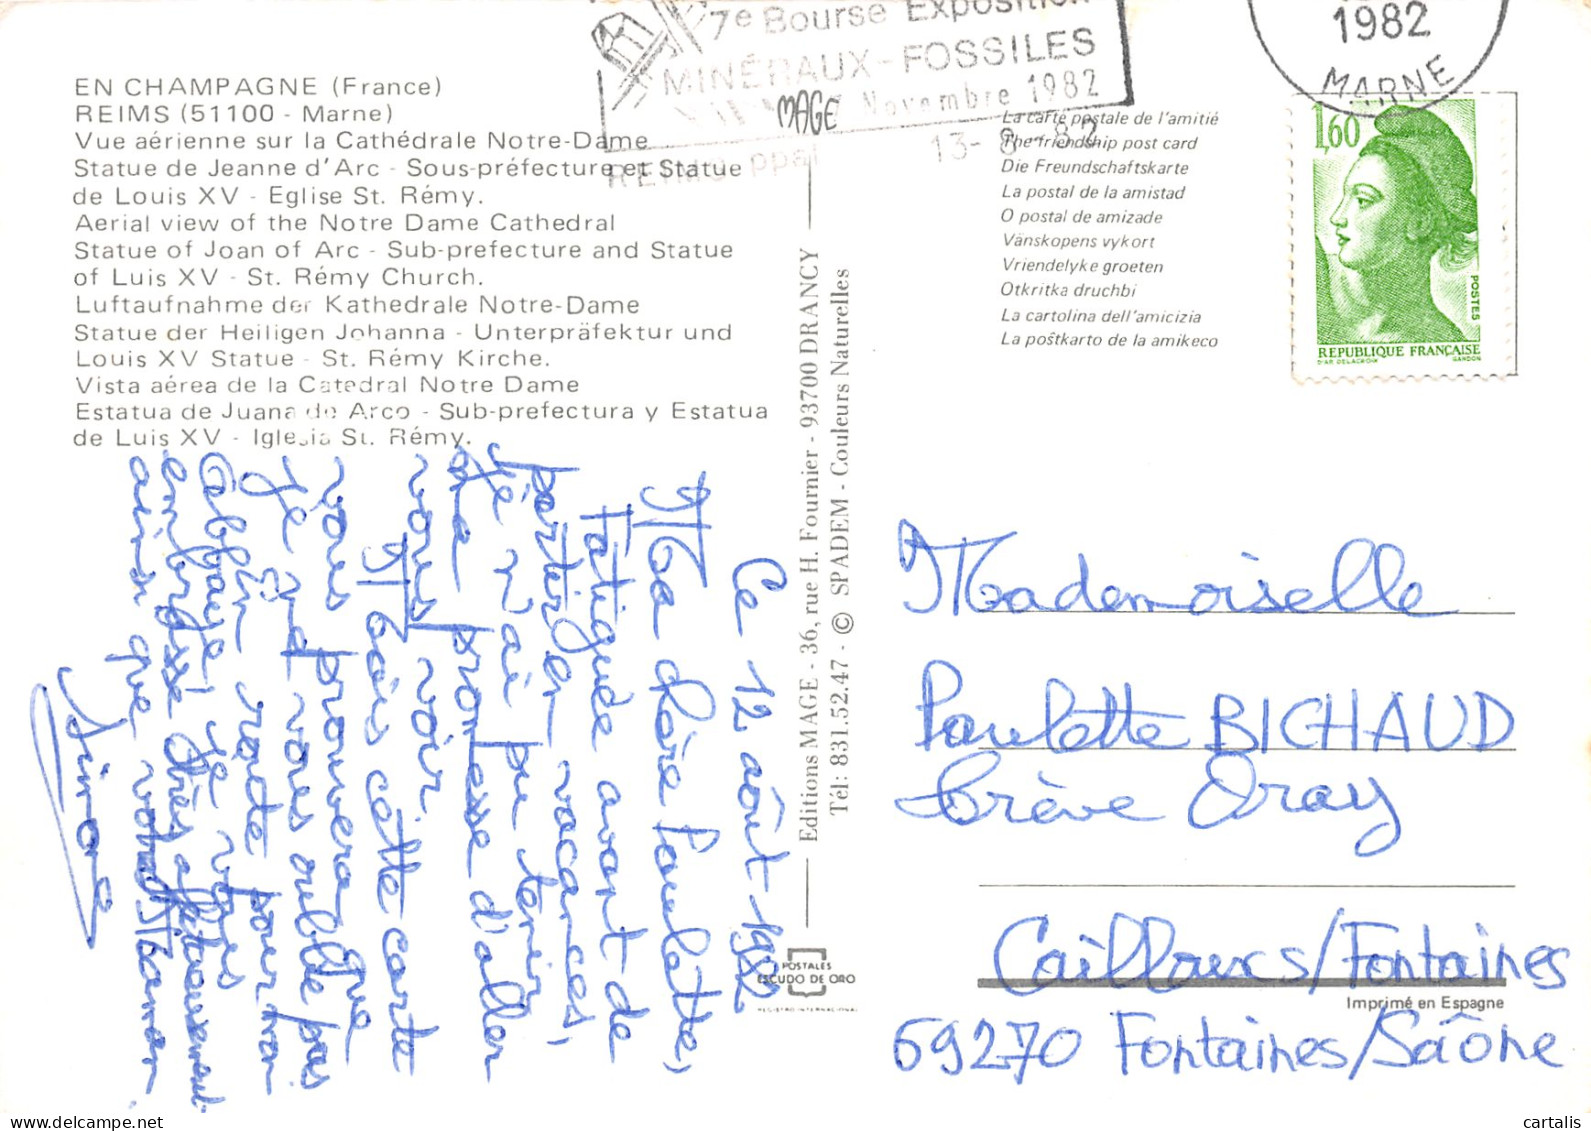 EN CHAMPAGNE (France)
REIMS (51100 - Marne)
Vue aérienne sur la Cathédrale Notre-Dame
Statue de Jeanne d'Arc - Sous-préfecture et Statue
de Louis XV - Eglise St. Rémy.
Aerial view of the Notre Dame Cathedral
Statue of Joan of Arc - Sub-prefecture and Statue
of Luis XV - St. Rémy Church.
Luftaufnahme der Kathedrale Notre-Dame
Statue der Heiligen Johanna - Unterpräfektur und
Louis XV Statue - St. Rémy Kirche.
Vista aérea de la Catedral Notre Dame
Estatua de Juana de Arco - Sub-prefectura y Estatua
de Luis XV - Iglesia St. Rémy.
7e Bourse Exposition
MINÉRAUX - FOSSILES
Novembre 1982
MAGE
REIMS ppal
13-8-82
1982
MARNE
La carte postale de l'amitié
The friendship post card
Die Freundschaftskarte
La postal de la amistad
O postal de amizade
Vänskopens vykort
Vriendelyke groeten
Otkritka druchbi
La cartolina dell'amicizia
La poŝtkarto de la amikeco
1,60
POSTES
REPUBLIQUE FRANÇAISE
D'AP. DELACROIX GANDON
Editions MAGE - 36, rue H. Fournier - 93700 DRANCY
Tél: 831.52.47 - © SPADEM - Couleurs Naturelles
Ce 12 août 1982
Ma chère Paulette,
Fatiguée avant de
partir en vacances,
je n'ai pu tenir
ma promesse d'aller
vous voir.
Mais cette carte
vous prouvera que
je ne vous oublie pas
je en route pour mon
Abbaye, je vous
embrasse très affectueusement
ainsi que votre Maman
Simone
POSTALES
ESCUDO DE ORO
REGISTRO INTERNACIONAL
Mademoiselle
Paulette BICHAUD
Grève Oray
Cailloux s/Fontaines
Imprimé en Espagne
69270 Fontaines/Saône
cartalis